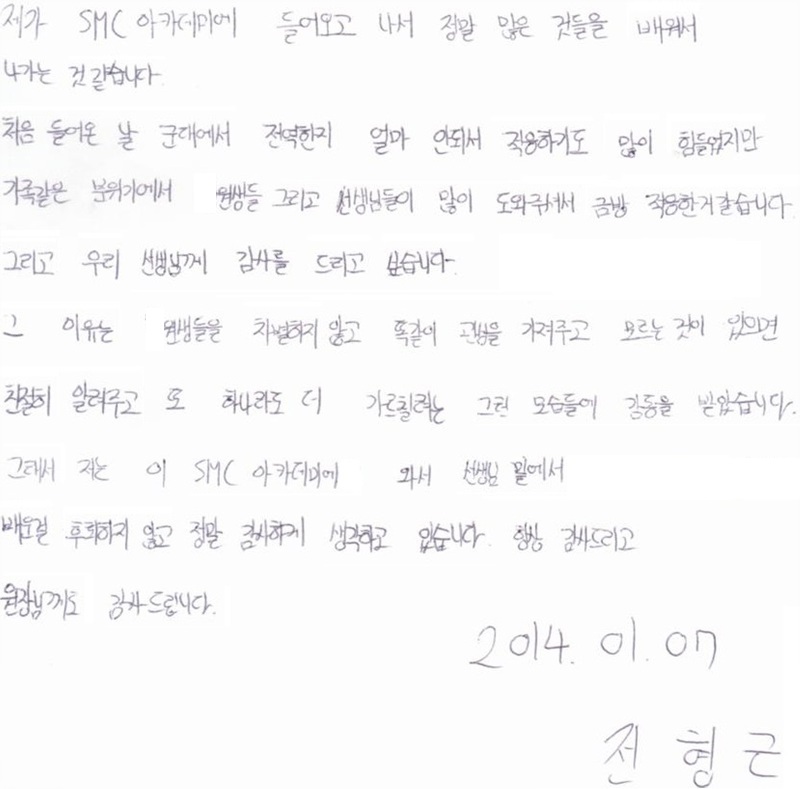 제가 SMC 아카데미에 들어오고 나서 정말 많은 것들을 배워서
나가는 것 같습니다.
처음 들어온 날 군대에서 전역한지 얼마 안되서 적응하기도 많이 힘들었지만
가족같은 분위기에서 원생들 그리고 선생님들이 많이 도와주셔서 금방 적응한거같습니다.
그리고 우리 선생님께 감사를 드리고 싶습니다.
그 이유는 원생들을 차별하지 않고 똑같이 관심을 가져주고 모르는 것이 있으면
친절히 알려주고 또 하나라도 더 가르칠려는 그런 모습들에 감동을 받았습니다.
그래서 저는 이 SMC 아카데미에 와서 선생님 밑에서
배운걸 후회하지 않고 정말 감사하게 생각하고 있습니다. 항상 감사드리고
원장님께도 감사드립니다.
2014. 01. 07
전 형 근